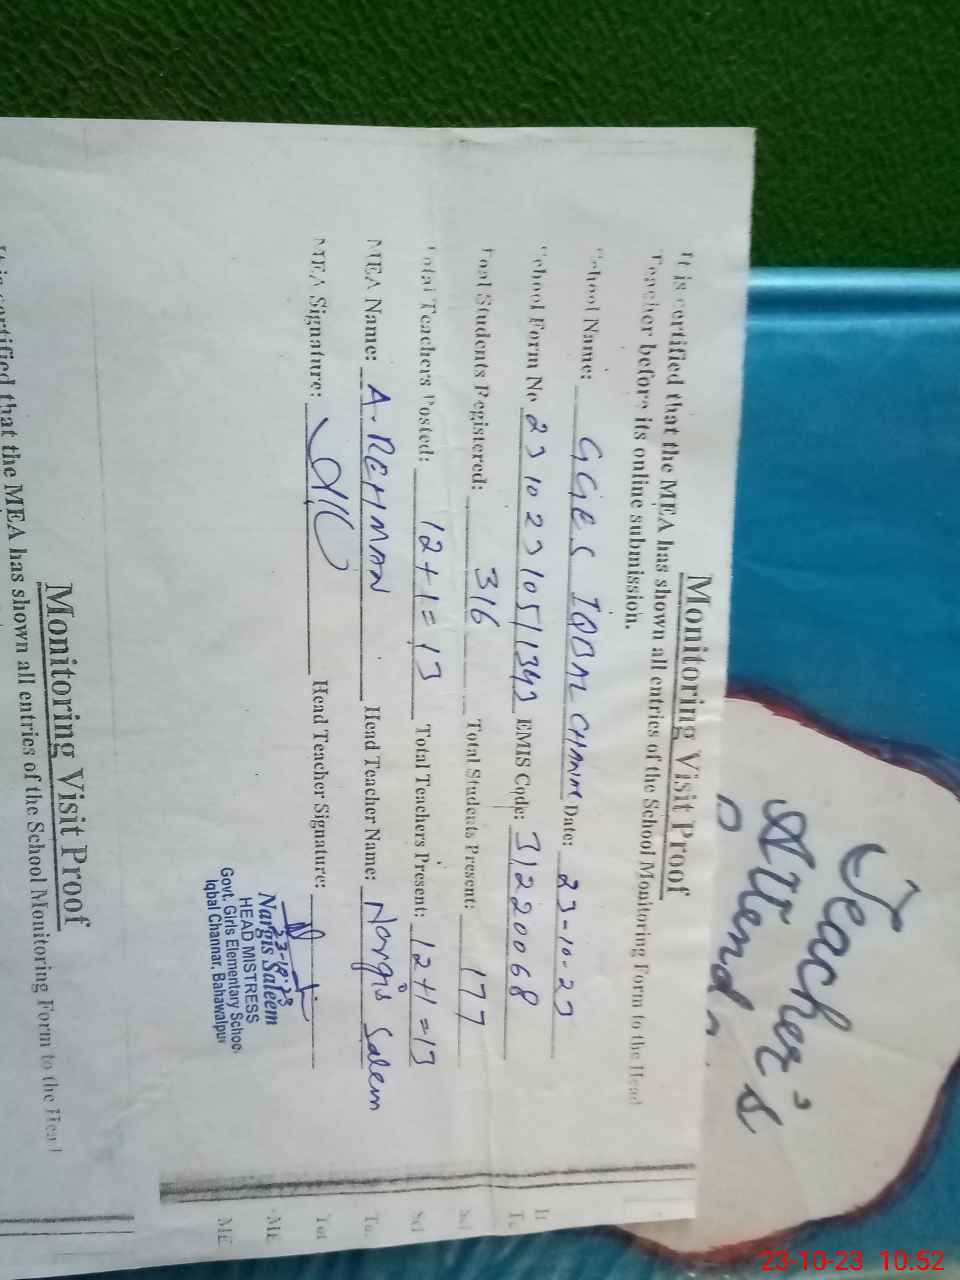 Monitoring Visit Proof
It is certified that the MEA has shown all entries of the School Monitoring Form to the Head
Teacher before its online submission.
School Name: GGES IQBAL CHANNR Date: 23-10-23
School Form No 23102310511343 EMIS Code: 31220068
Toal Students Registered: 316 Total Students Present: 177
Total Teachers Posted: 12+1=13 Total Teachers Present: 12+1=13
MEA Name: A.REHMAN Head Teacher Name: Nargis Saleem
MEA Signature: Head Teacher Signature:
23-10-23
Nargis Saleem
HEAD MISTRESS
Govt. Girls Elementary School
Iqbal Channar, Bahawalpur
Monitoring Visit Proof
It is certified that the MEA has shown all entries of the School Monitoring Form to the Head
Teacher's
Attend
It
Te
Scl
Scl
To
Tot
ME
ME
23-10-23 10.52